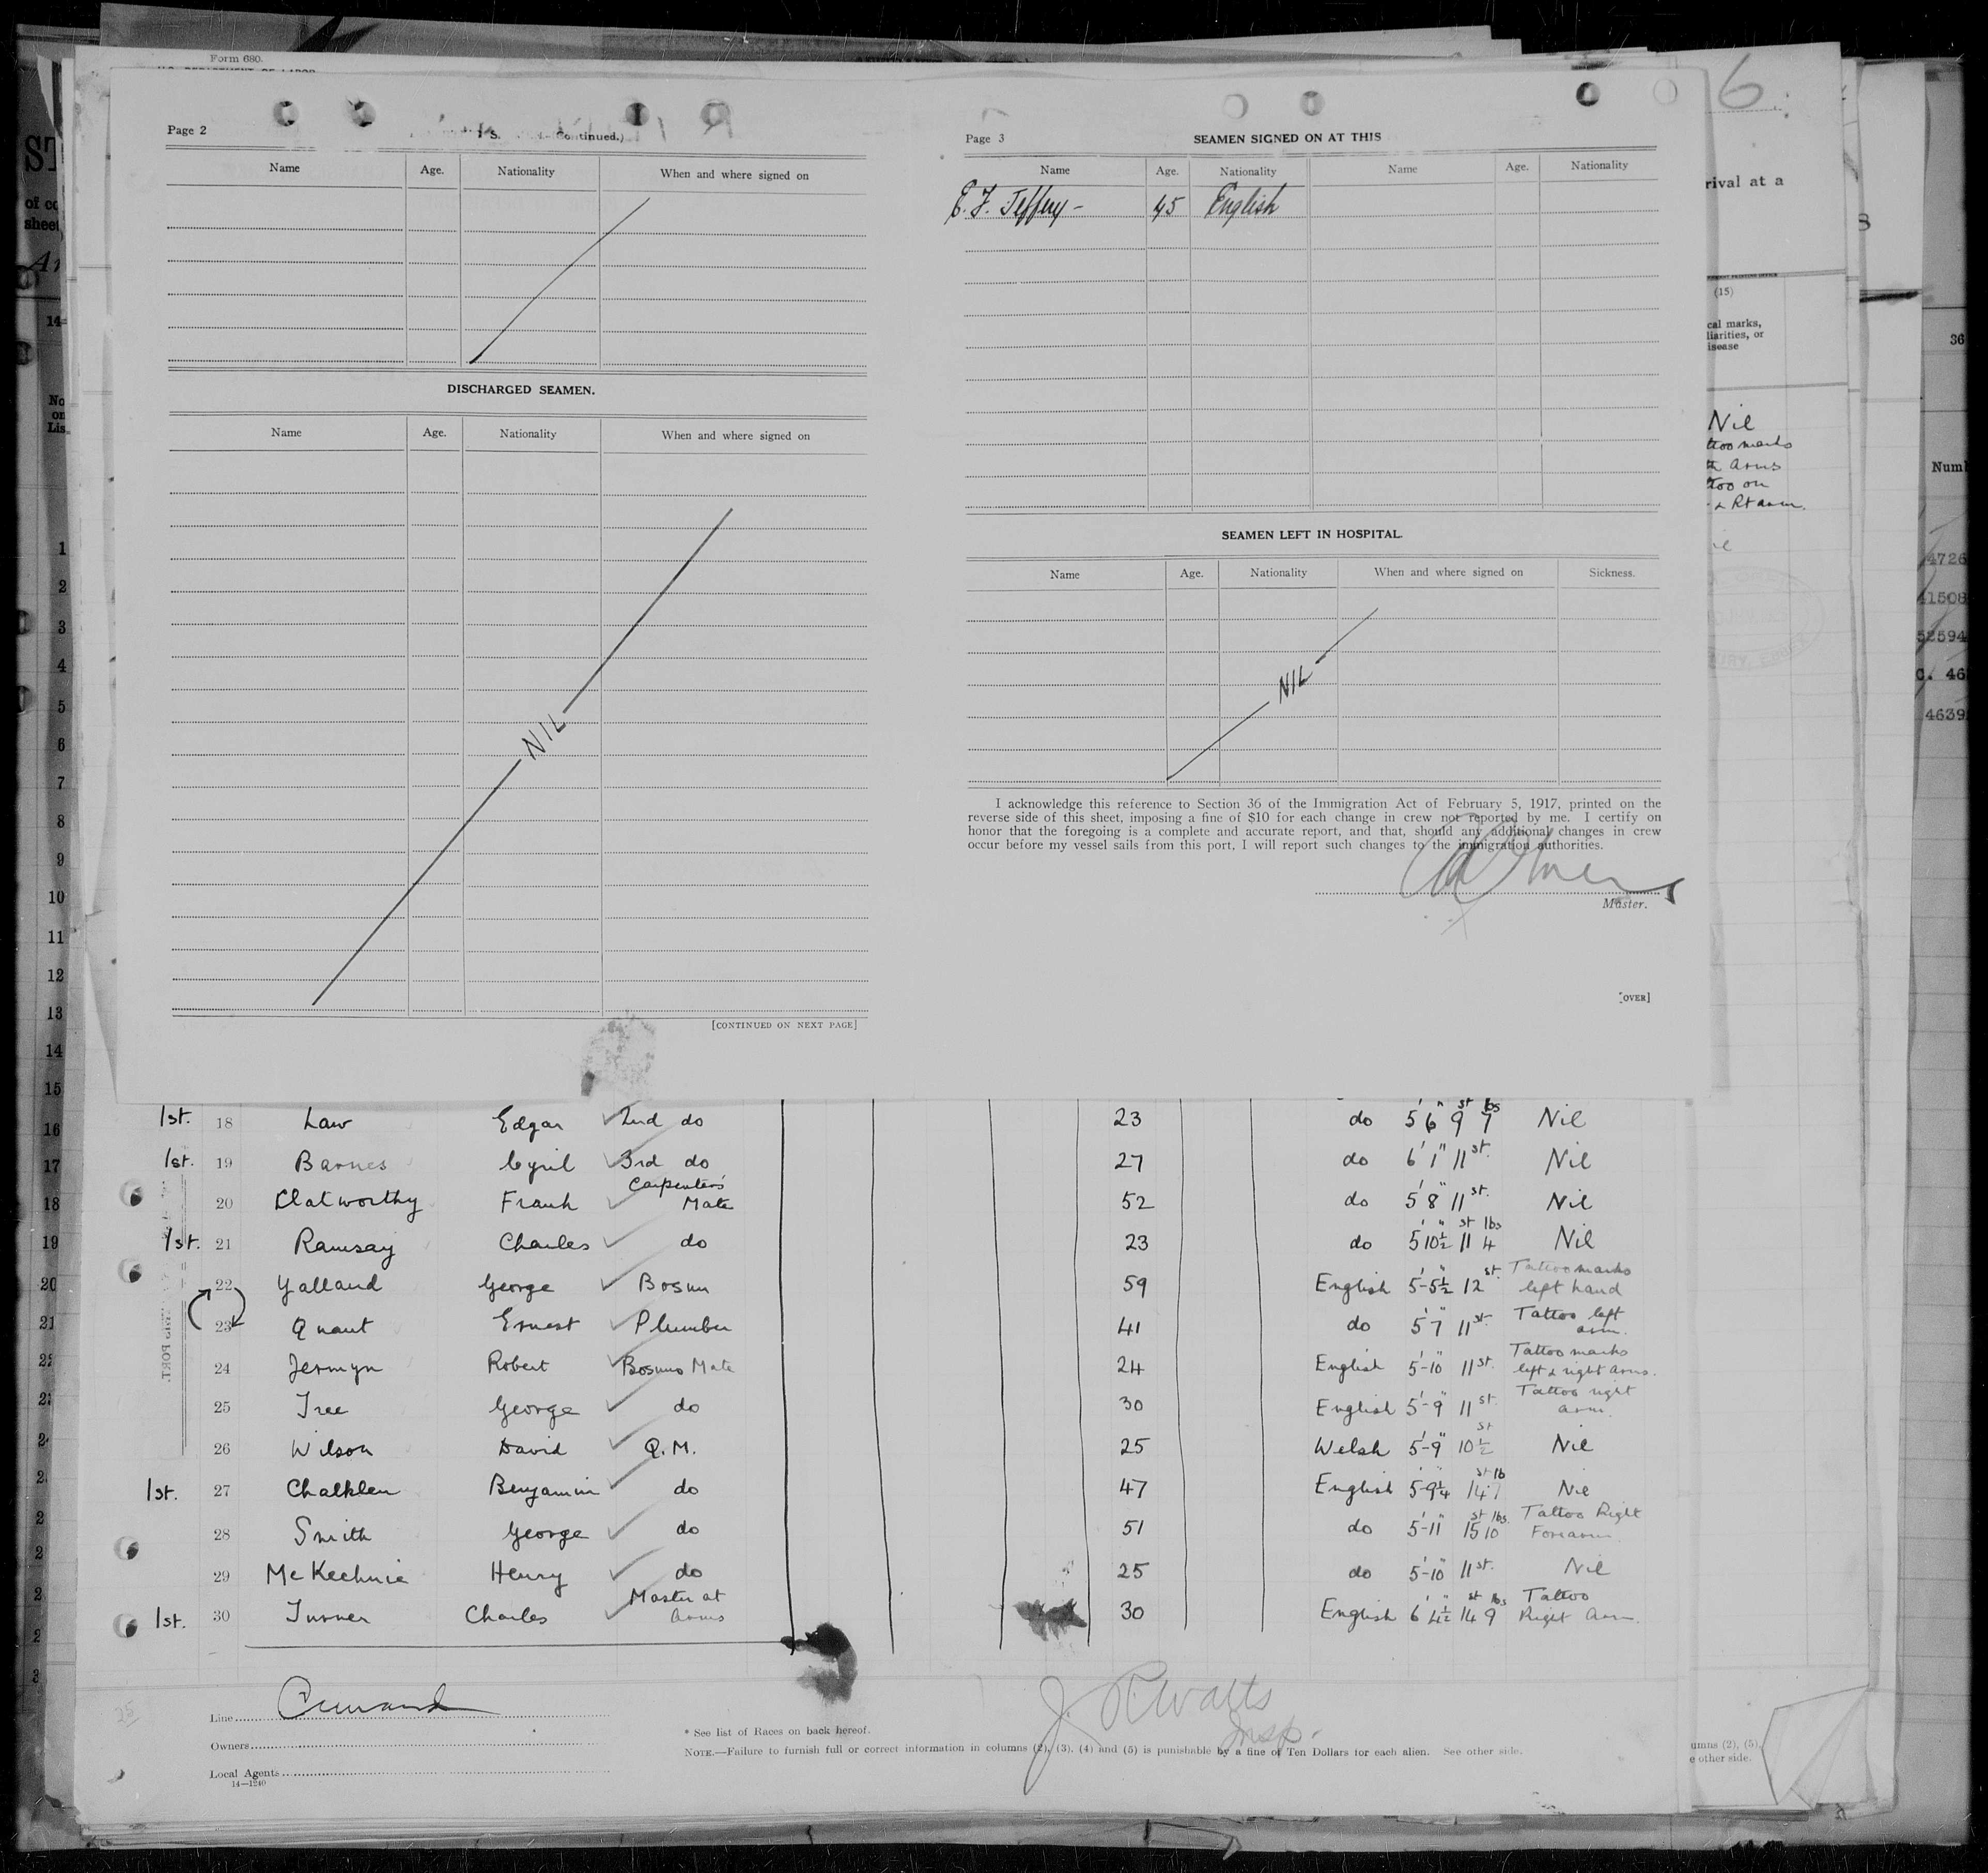 Form 680.
Page 2
Continued.)
Name Age. Nationality When and where signed on
DISCHARGED SEAMEN.
Name Age. Nationality When and where signed on
NIL
[CONTINUED ON NEXT PAGE]
Page 3
SEAMEN SIGNED ON AT THIS
Name Age. Nationality Name Age. Nationality
E. F. Jeffery - 45 English
SEAMEN LEFT IN HOSPITAL.
Name Age. Nationality When and where signed on Sickness.
NIL
I acknowledge this reference to Section 36 of the Immigration Act of February 5, 1917, printed on the
reverse side of this sheet, imposing a fine of $10 for each change in crew not reported by me. I certify on
honor that the foregoing is a complete and accurate report, and that, should any additional changes in crew
occur before my vessel sails from this port, I will report such changes to the immigration authorities.
Master.
[OVER]
6
rival at a
(15)
cal marks,
liarities, or
isease
Nil
too marks
th arms
too on
& Rt arm.
36
Numb
4726
41508
52594
C. 46
4639
ST
of co
sheet
No
on
Lis
1
2
3
4
5
6
7
8
9
10
11
12
13
14
15
16
17
18
19
20
21
1st. 18 Law Edgar 2nd do 23 do 5' 6" 9 st 7 lbs Nil
1st. 19 Barnes Cyril 3rd do 27 do 6' 1" 11 st. Nil
20 Clatworthy Frank Carpenters Mate 52 do 5' 8" 11 st. Nil
1st. 21 Ramsay Charles do 23 do 5' 10½" 11 st 4 lbs Nil
22 Yalland George Bosun 59 English 5'-5½" 12 st. Tattoo marks left hand
23 Quant Ernest Plumber 41 do 5' 7" 11 st. Tattoo left arm.
24 Jermyn Robert Bosuns Mate 24 English 5'-10" 11 st. Tattoo marks left & right arms.
25 Tree George do 30 English 5'-9" 11 st. Tattoo right arm.
26 Wilson David Q.M. 25 Welsh 5'-9" 10½ st Nil
1st. 27 Chalklen Benjamin do 47 English 5'-9¼" 14 st 7 lb Nil
28 Smith George do 51 do 5'-11" 15 st 10 lbs. Tattoo Right Forearm
29 McKechnie Henry do 25 do 5'-10" 11 st. Nil
1st. 30 Turner Charles Master at arms 30 English 6' 4½" 14 st 9 lbs Tattoo Right arm.
Line Cunard
Owners
Local Agents
14—1240
* See list of Races on back hereof.
NOTE.—Failure to furnish full or correct information in columns (2), (3), (4) and (5) is punishable by a fine of Ten Dollars for each alien. See other side.
J. R. Watts
Insp.
umns (2), (5),
e other side.